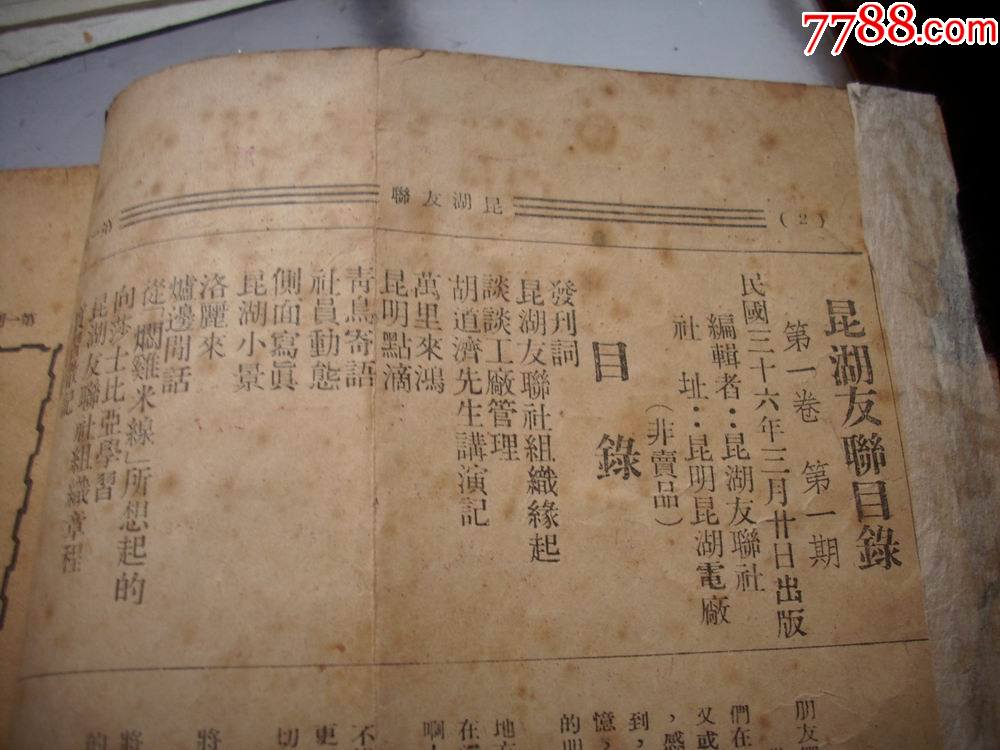 7788.com
昆湖友聯
(2)
昆湖友聯目錄
第一卷 第一期
民國三十六年三月廿日出版
編輯者：昆湖友聯社
社址：昆明昆湖電廠
（非賣品）
目錄
發刊詞
昆湖友聯社組織緣起
談談工廠管理
胡道濟先生講演記
萬里來鴻
昆明點滴
青鳥寄語
社員動態
側面寫眞
昆湖小景
洛麗來
爐邊閒話
從「燜雞米線」所想起的
向莎士比亞學習
昆湖友聯社組織章程
朋友
們在
又或
，感
到，
憶，
的
地
在
啊
不
更
切
將
將
的
第一